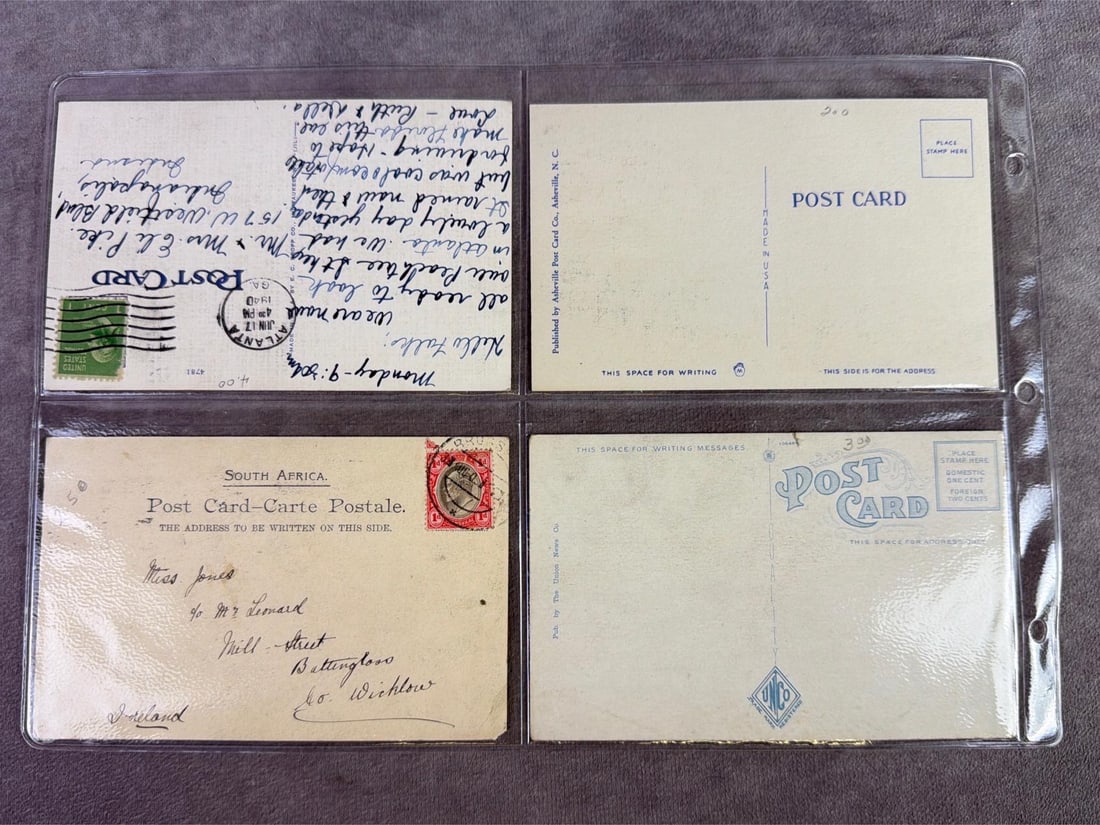 Monday - 9:30 A.M.
Hello Folks;
We are now
all ready to look
over Peachtree St here
in Atlanta. We had
a lovely day yesterday
It rained now & then
but was cool & comfortable
for driving - Hope to
make Florida this eve
Love - Ruth & Nella.
4781
4.00
POST CARD
ATLANTA
GA.
JUN 17
4 PM
1940
UNITED STATES
Mr. & Mrs. Eli Pike.
157 W. Westfield Blvd
Indianapolis,
Indiana
200
PLACE
STAMP HERE
POST CARD
Published by Asheville Post Card Co., Asheville, N. C.
MADE IN USA
THIS SPACE FOR WRITING
THIS SIDE IS FOR THE ADDRESS
SOUTH AFRICA.
Post Card–Carte Postale.
THE ADDRESS TO BE WRITTEN ON THIS SIDE.
Miss Jones
c/o Mr Leonard
Mill - Street
Battinglass
Co. Wicklow
Ireland
THIS SPACE FOR WRITING MESSAGES
300
POST
CARD
PLACE
STAMP HERE
DOMESTIC
ONE CENT
FOREIGN
TWO CENTS
THIS SPACE FOR ADDRESS ONLY
Pub. by The Union News Co.
UNCO